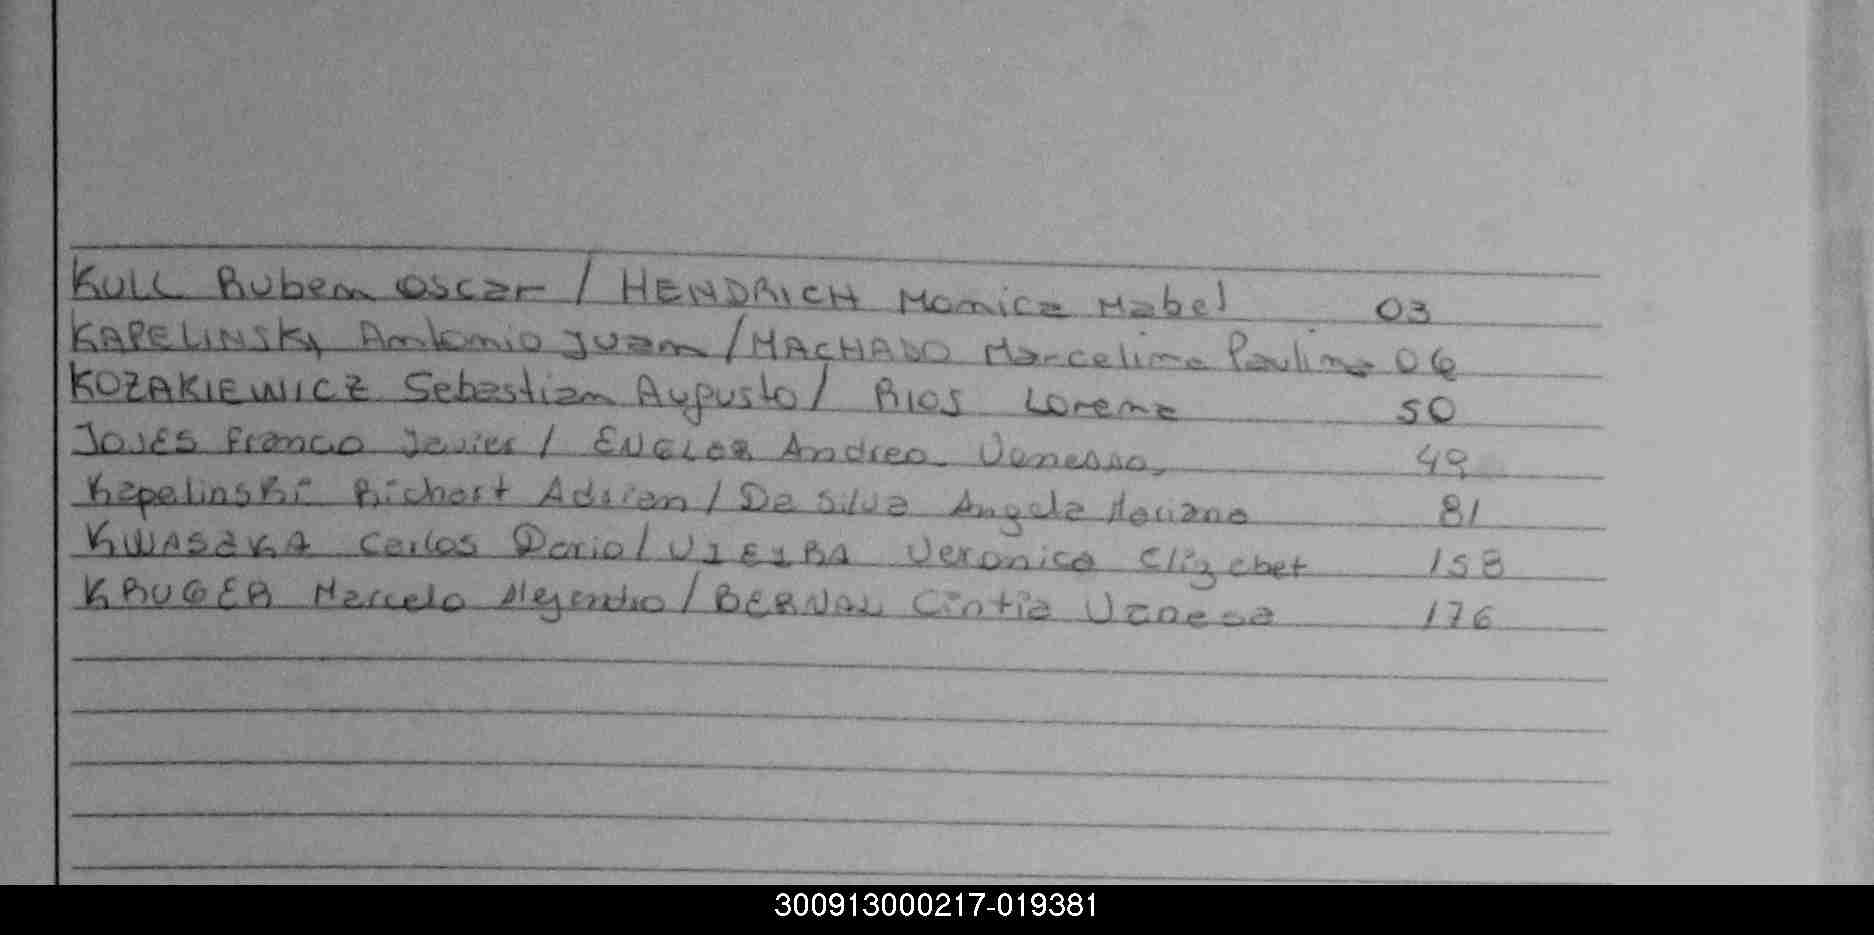 KULL Ruben oscar / HENDRICH Monica Mabel 03
KAPELINSKI Antonio Juan / MACHADO Marcelina Paulina 06
KOZAKIEWICZ Sebastian Augusto / RIOS Lorena 50
Franco Javier / Andrea Vanessa. 49
Kapelinski Richart Adrian / Da Silva Angela Mariana 81
KWASZKA Carlos Dario / VIEIRA Veronica Elizabet 158
KRUGER Marcelo Alejandro / BERNAL Cintia Vanesa 176
300913000217-019381